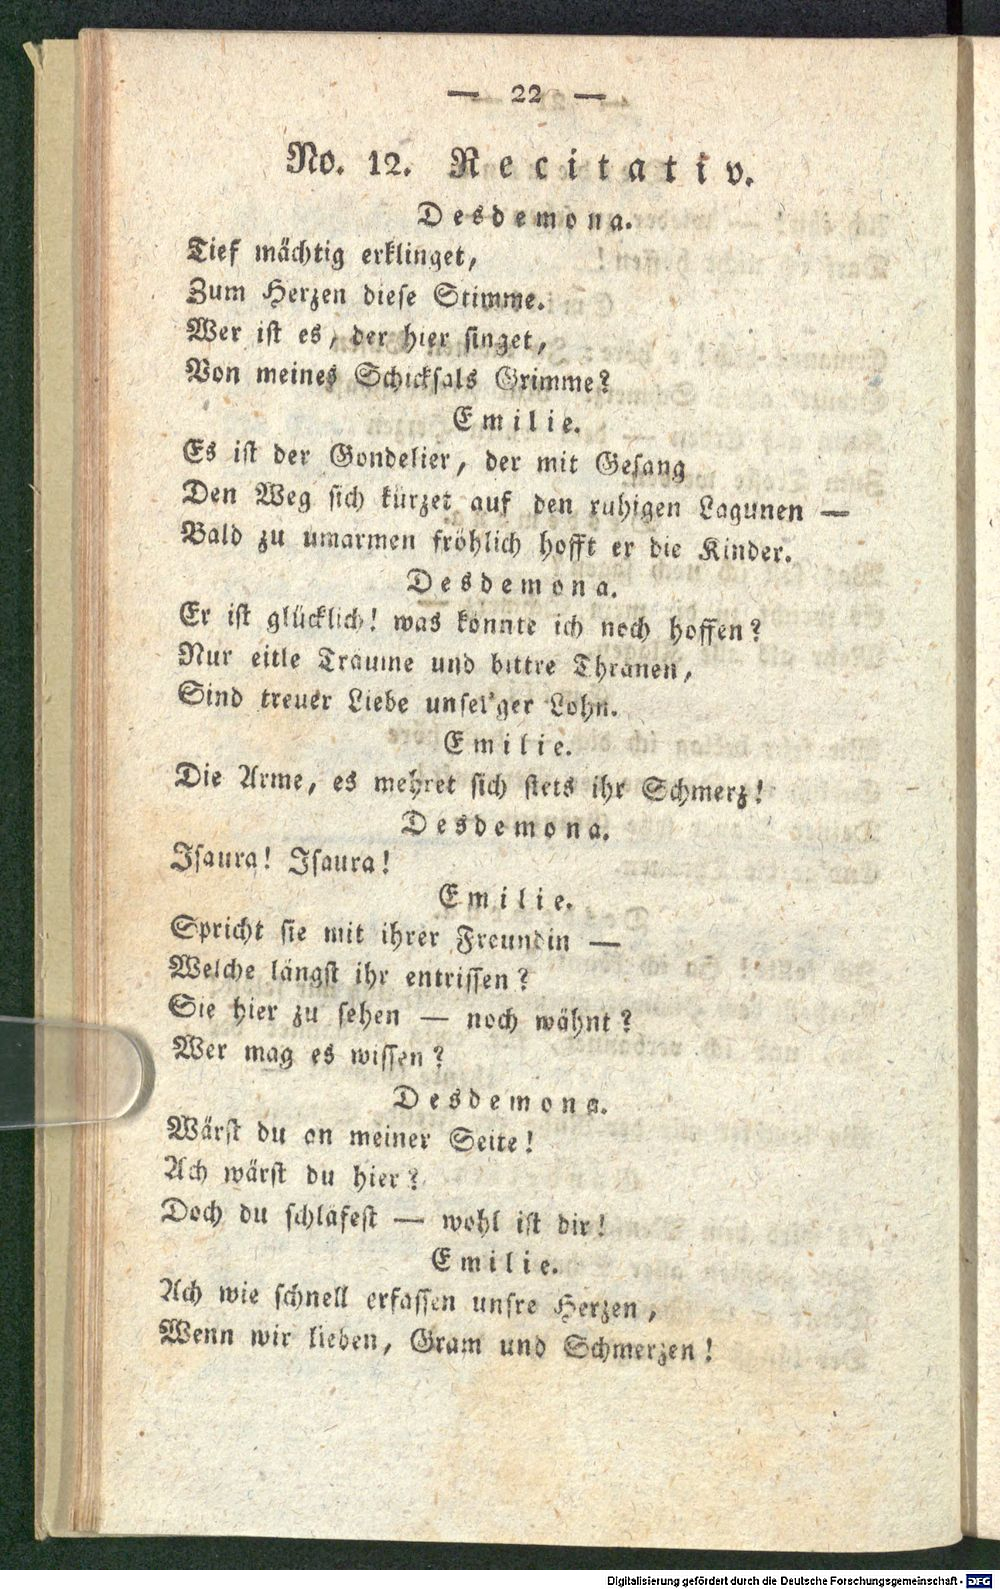 — 22 —
No. 12. Recitativ.
Desdemona.
Tief mächtig erklinget,
Zum Herzen diese Stimme.
Wer ist es, der hier singet,
Von meines Schicksals Grimme?
Emilie.
Es ist der Gondelier, der mit Gesang
Den Weg sich kürzet auf den ruhigen Lagunen —
Bald zu umarmen fröhlich hofft er die Kinder.
Desdemona.
Er ist glücklich! was könnte ich noch hoffen?
Nur eitle Träume und bittre Thränen,
Sind treuer Liebe unsel'ger Lohn.
Emilie.
Die Arme, es mehret sich stets ihr Schmerz!
Desdemona.
Isaura! Isaura!
Emilie.
Spricht sie mit ihrer Freundin —
Welche längst ihr entrissen?
Sie hier zu sehen — noch wähnt?
Wer mag es wissen?
Desdemona.
Wärst du an meiner Seite!
Ach wärst du hier?
Doch du schläfest — wohl ist dir!
Emilie.
Ach wie schnell erfassen unsre Herzen,
Wenn wir lieben, Gram und Schmerzen!
Digitalisierung gefördert durch die Deutsche Forschungsgemeinschaft - DFG